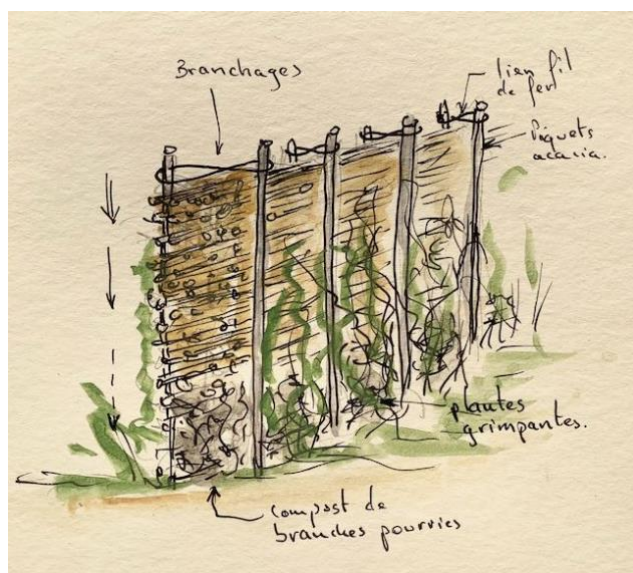 Branchages
lien fil
de fer
Piquets
acacia.
plantes
grimpantes.
compost de
branches pourries